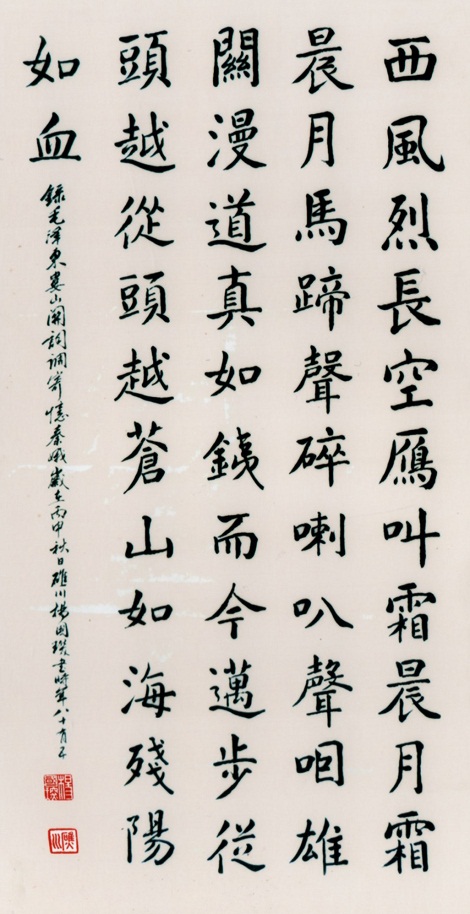 西風烈長空鴈叫霜晨月霜
晨月馬蹄聲碎喇叭聲咽雄
關漫道真如銕而今邁步従
頭越從頭越蒼山如海殘陽
如血
錄毛泽東婁山関詞調寄憶秦娥歲在丙申秋日川楊國書時年八十有五